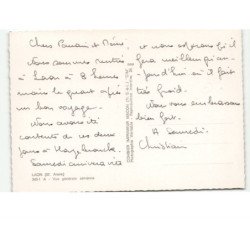 Chers Parrain et Mémé,
Nous sommes rentrés
à Laon à 8 heures
moins le quart après
un bon voyage.
Nous avons été
contents de ces deux
jours à Hazebrouck.
Samedi arrivera vite
et nous espérons qu'il
fera meilleur qu'au-
jourd'hui où il fait
très froid.
Nous vous embrassons
bien fort.
A Samedi.
Christian
LAON (02. Aisne)
Vue générale aérienne